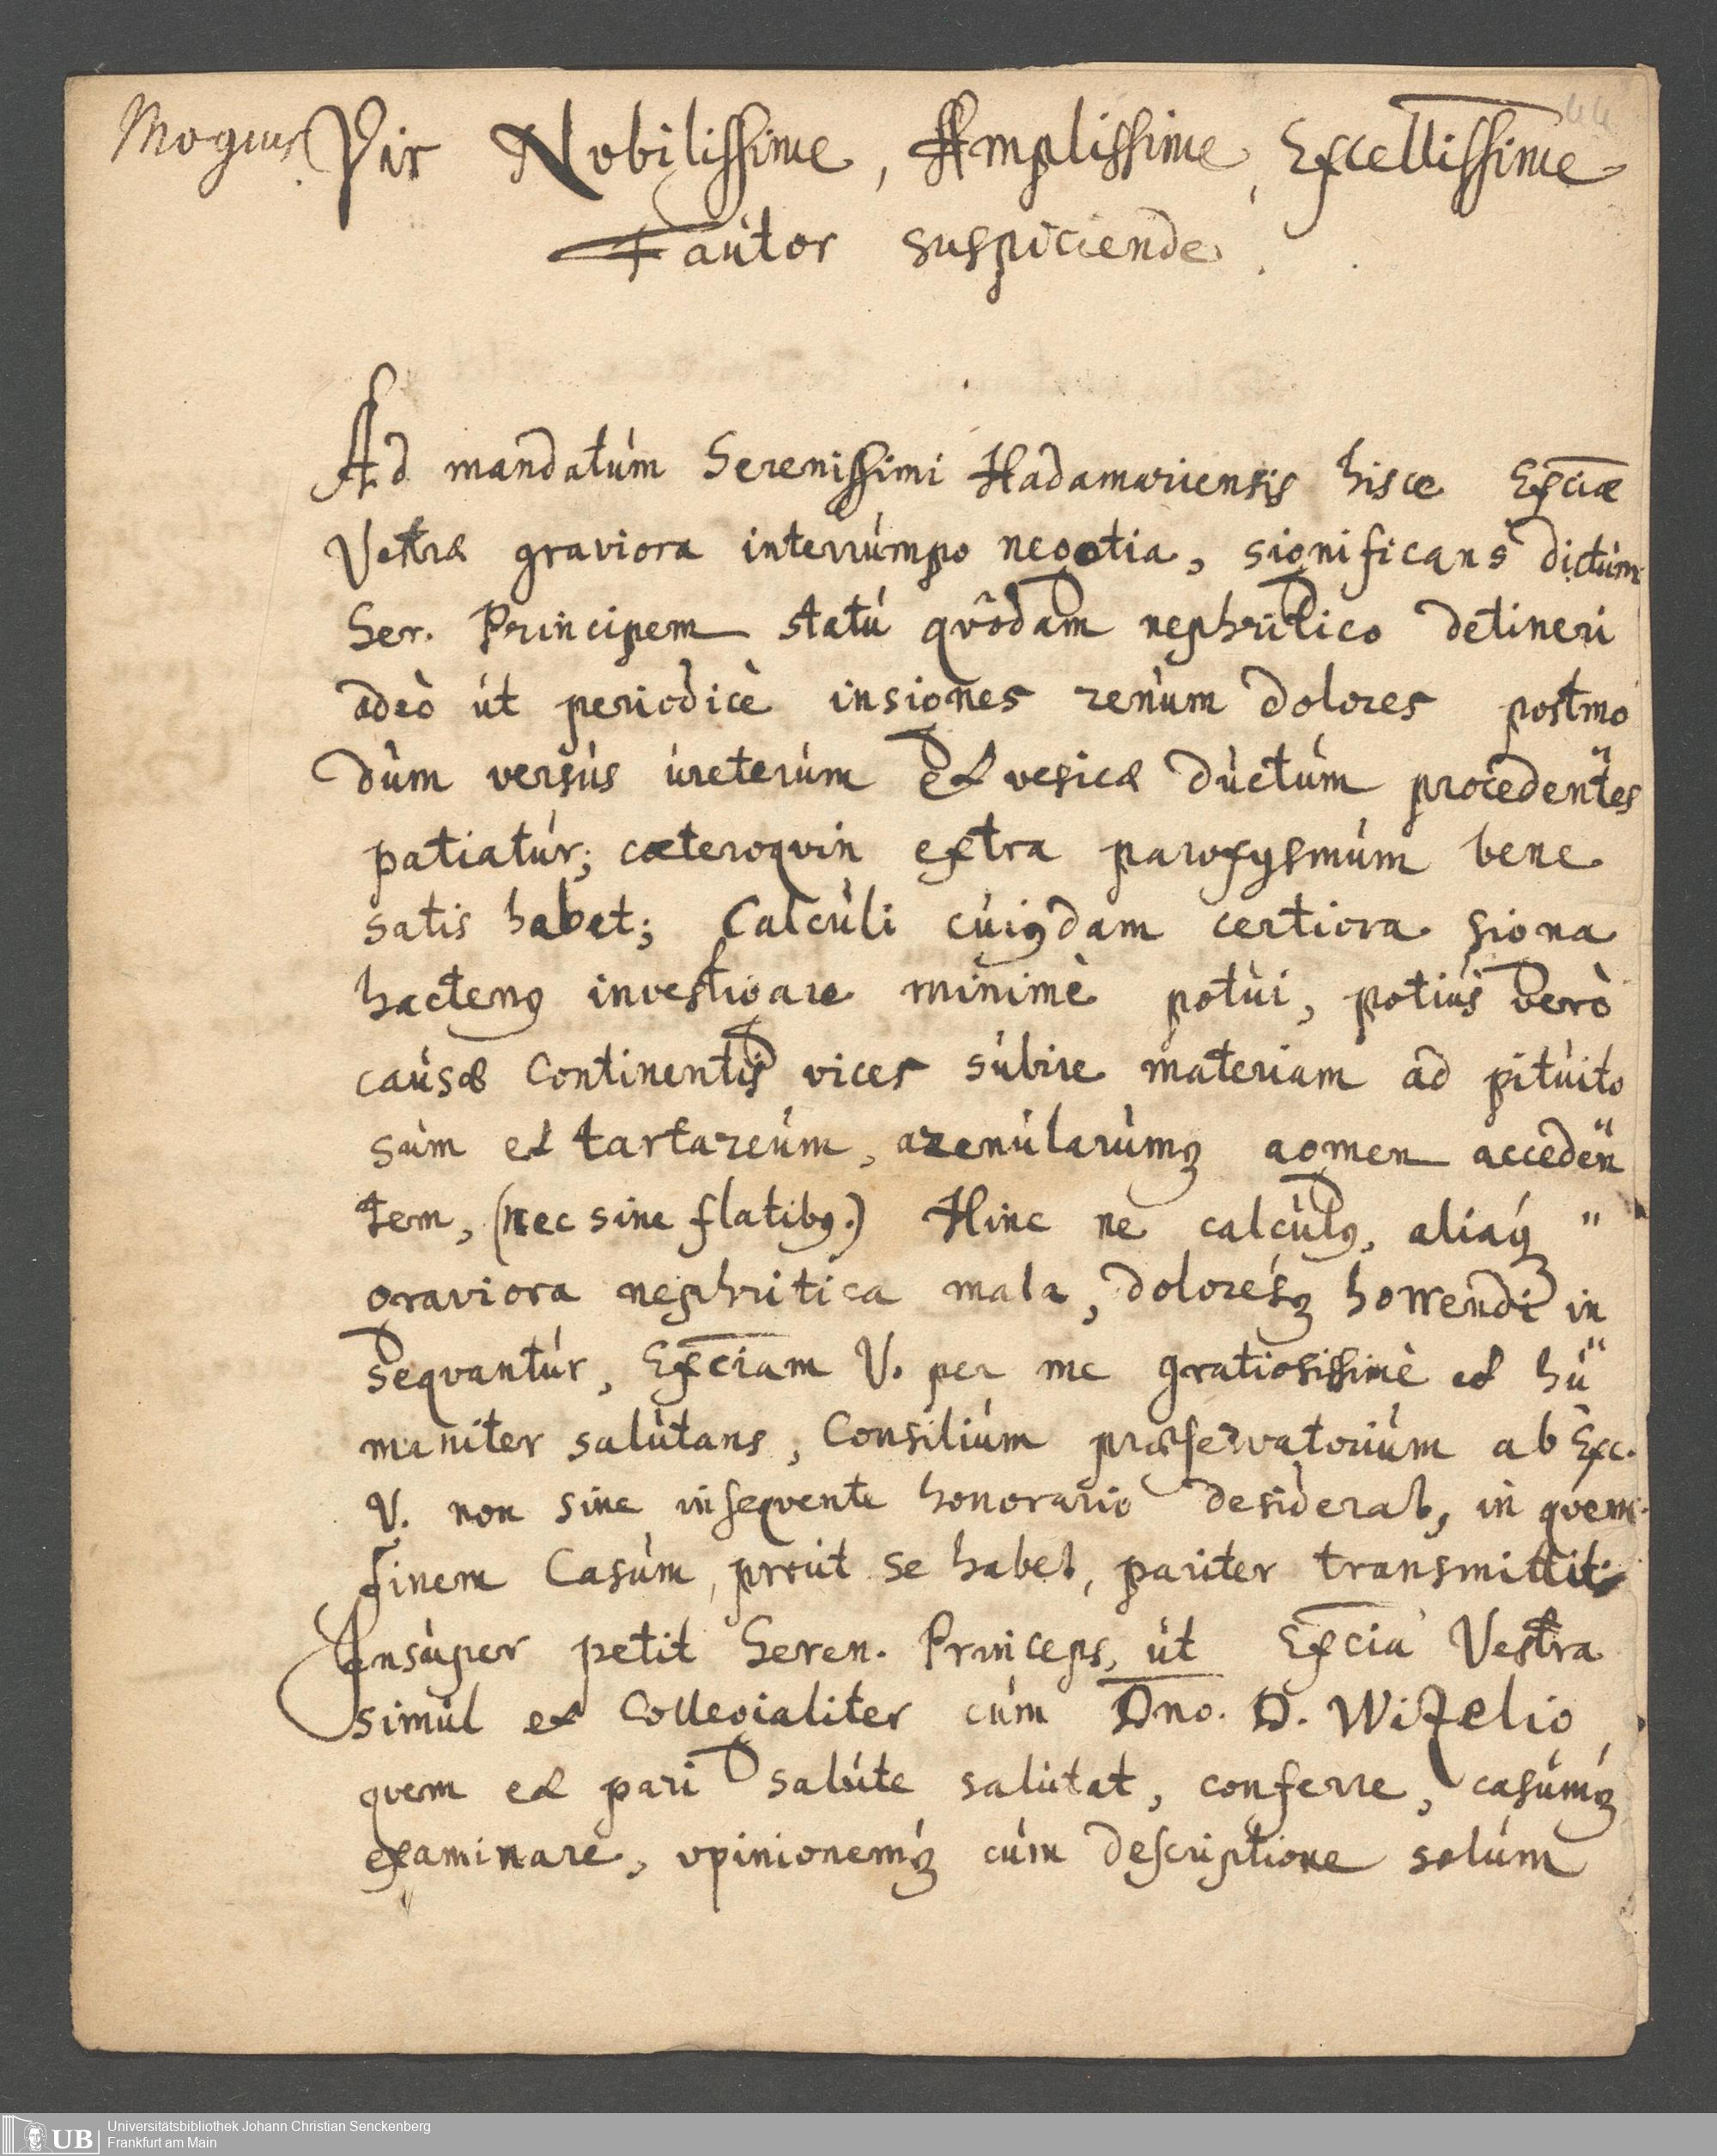 Mogius
Vir Nobilissime, Amplissime, Excellissime
Fautor suspiciende.
Ad mandatúm Serenissimi Hadamariensis hisce Exciæ
Vestræ graviora interrúmpo negotia, significans dictúm
Ser. Principem statú qvôdam nephritico detineri
adeò út periodicè insignes renúm dolores postmo
dùm versús úreterúm et vesicæ dúctúm procedentes
patiatúr; cæteroqvin extra paroxysmúm bene
satis habet; Calcúli cúiqdam certiora signa
hactenq investigare minimè potúi, potiús verò
caúsæ Continentis vices súbire materiam ad pitúito
súm et tartareúm, arenúlarúmq agmen acceden"
tem, (nec sine flatibq.) Hinc ne calcúlq, aliaq "
graviora nephritica mala, dolorésq horrendi in
seqvantúr, Exciam V. per me gratiosissimè et hú"
maniter salútans, Consiliúm præservatoriúm ab Exc.
V. non sine insequente honorario desiderat, in qvem
finem Casúm, proút se habet, pariter transmittit.
Insúper petit Seren. Princeps, út Excia Vestra
simúl et Collegialiter cúm Dno. D. Wizelio,
qvem et pari salúte salútat, conferre, casúmq
examinare, opinionemq cúm descriptione solúm
Universitätsbibliothek Johann Christian Senckenberg
Frankfurt am Main
UB